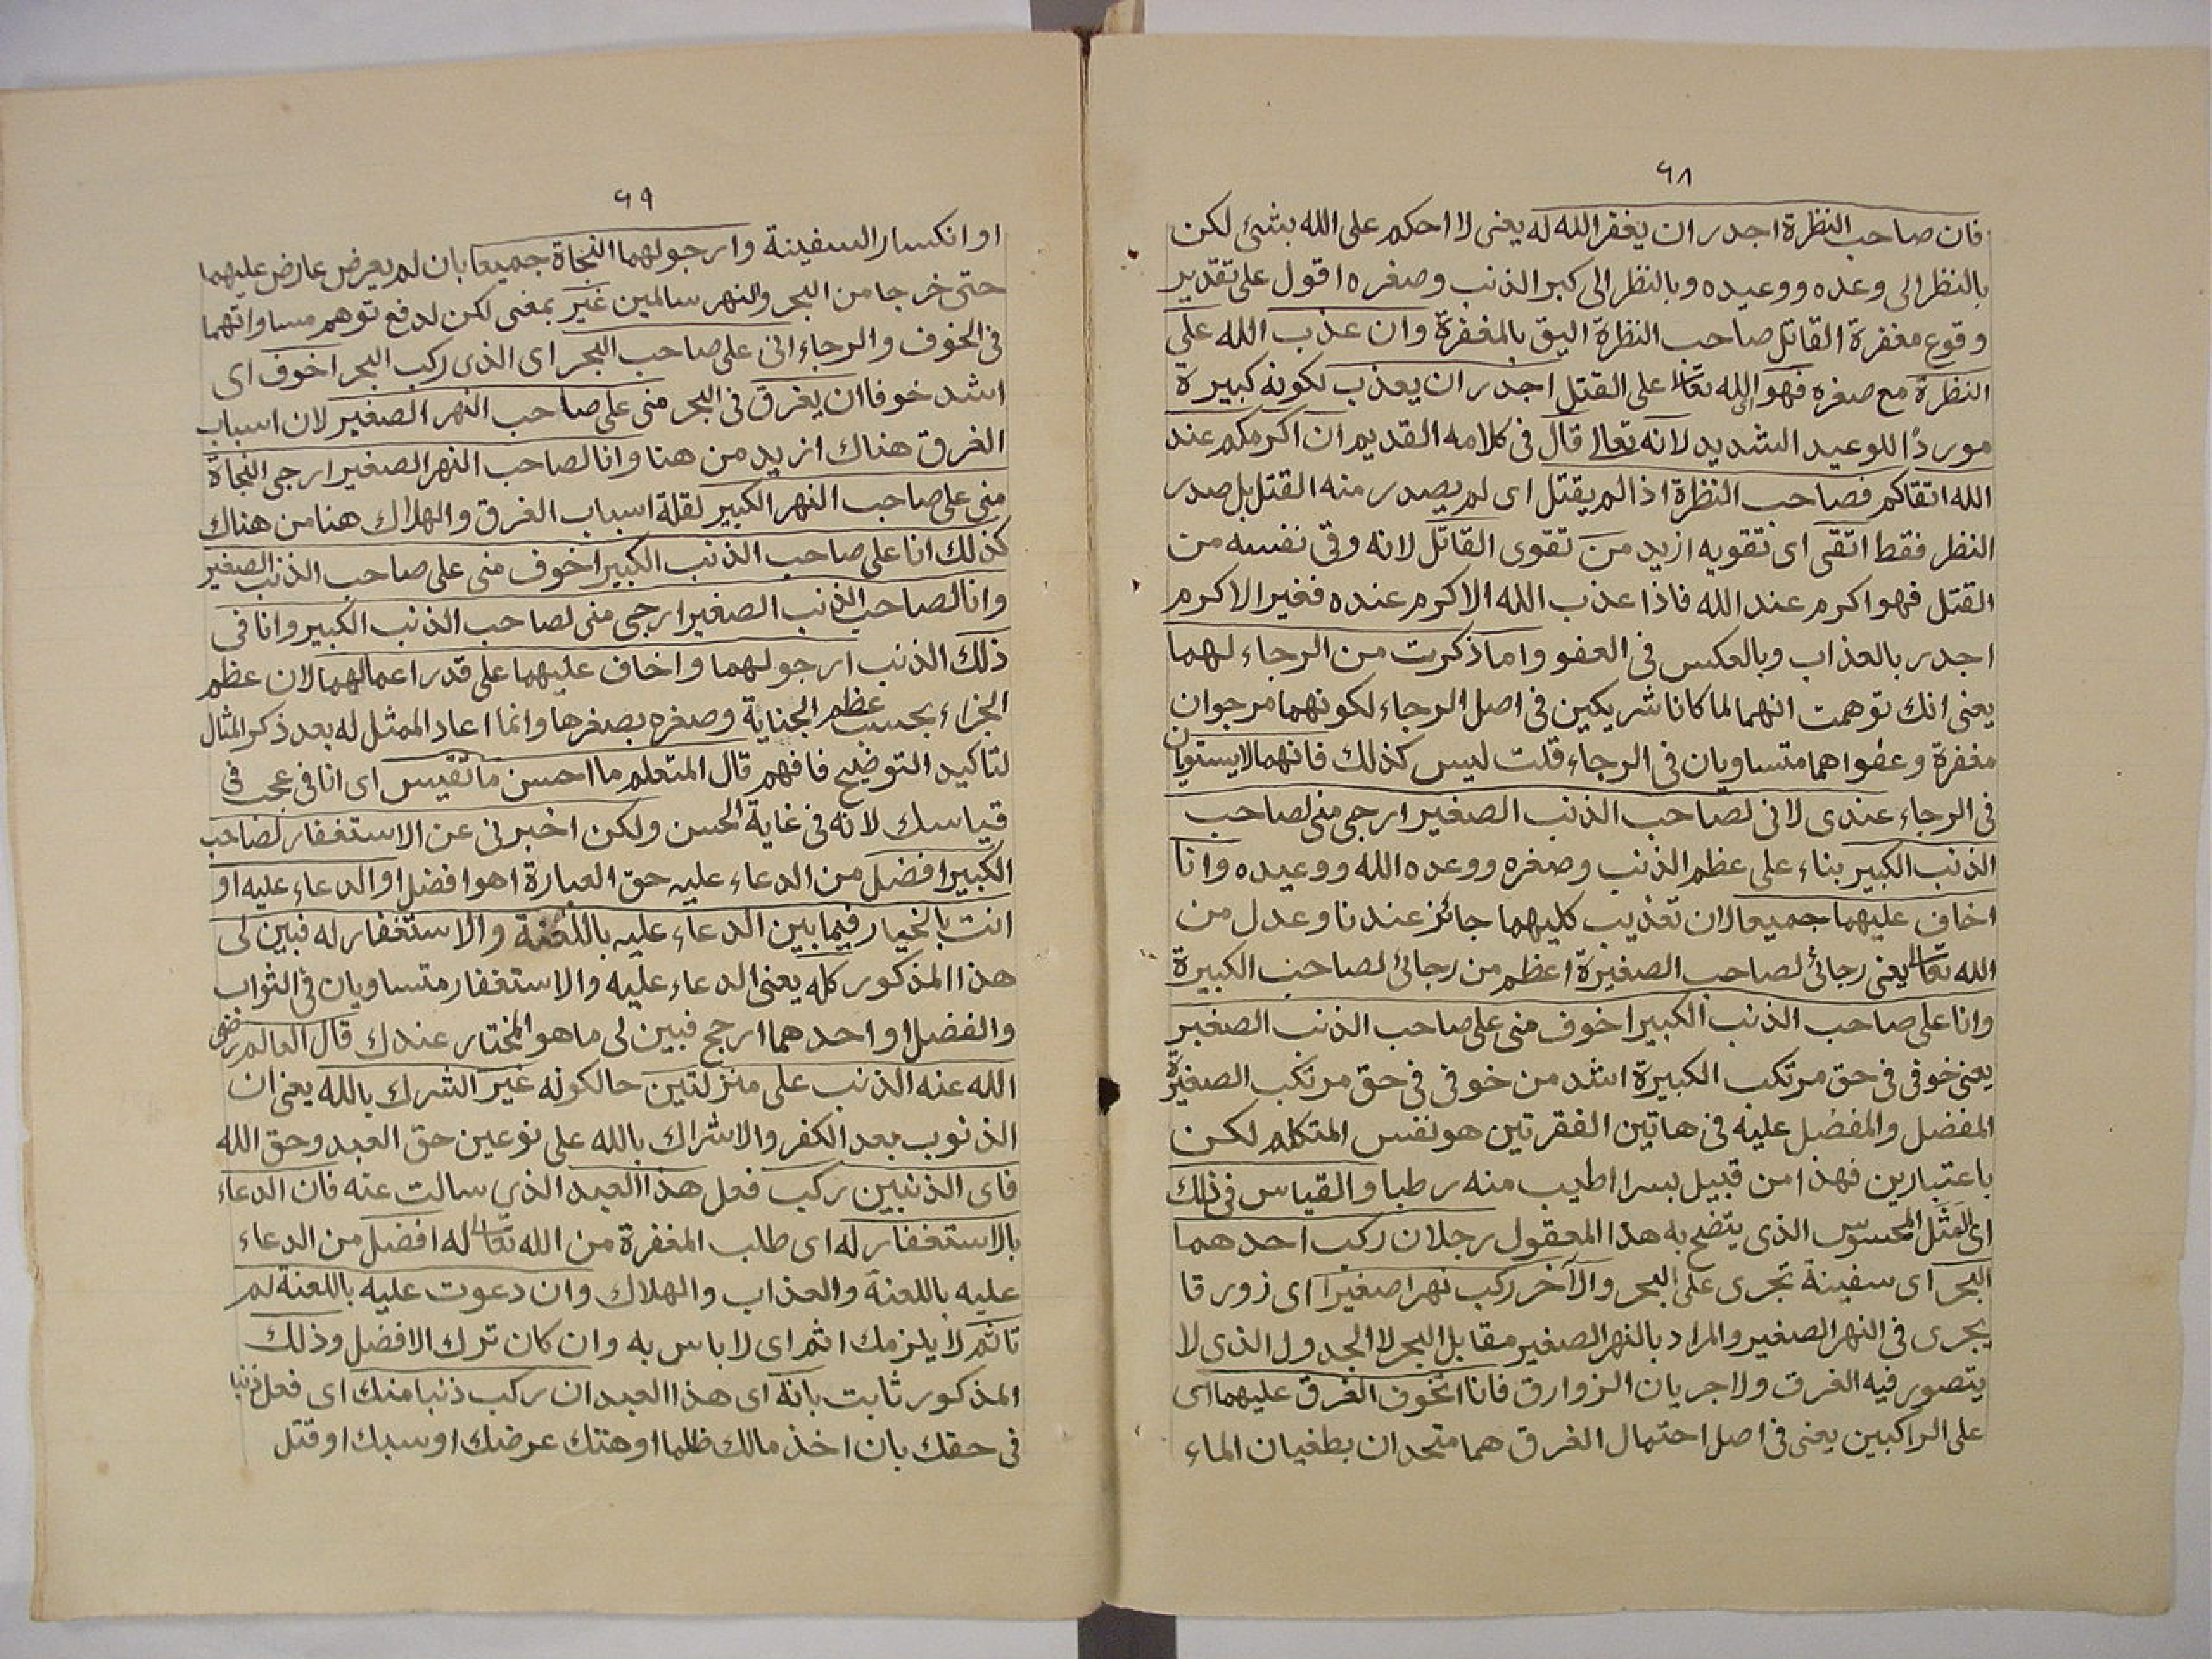 ٦٨
فان صاحب النظرة اجدر ان يغفر الله له يعنى لا احكم على الله بشئ لكن
بالنظر الى وعده ووعيده وبالنظر الى كبر الذنب وصغره اقول على تقدير
وقوع مغفرة القاتل صاحب النظرة اليق بالمغفرة وان عذب الله على
النظرة مع صغره فهو الله تعالى على القتل اجدر ان يعذب لكونه كبيرة
موردًا للوعيد الشديد لانه تعالى قال فى كلامه القديم ان اكرمكم عند
الله اتقاكم فصاحب النظرة اذا لم يقتل اى لم يصدر منه القتل بل صدر
النظر فقط اتقى اى تقويه ازيد من تقوى القاتل لانه وقى نفسه من
القتل فهو اكرم عند الله فاذا عذب الله الاكرم عنده فغير الاكرم
اجدر بالعذاب وبالعكس فى العفو واما ذكرت من الرجاء لهما
يعنى انك توهمت انهما لما كانا شريكين فى اصل الرجاء لكونهما مرجوان
مغفرة وعفوا هما متساويان فى الرجاء قلت ليس كذلك فانهما لا يستويان
فى الرجاء عندى لانى لصاحب الذنب الصغير ارجى منى لصاحب
الذنب الكبير بناء على عظم الذنب وصغره ووعده الله ووعيده وانا
اخاف عليهما جميعا لان تعذيب كليهما جائز عندنا وعدل من
الله تعالى يعنى رجائى لصاحب الصغيرة اعظم من رجائى لصاحب الكبيرة
وانا على صاحب الذنب الكبير اخوف منى على صاحب الذنب الصغير
يعنى خوفى فى حق مرتكب الكبيرة اشد من خوفى فى حق مرتكب الصغيرة
المفضل والمفضل عليه فى هاتين الفقرتين هو نفس المتكلم لكن
باعتبارين فهذا من قبيل بسرا اطيب منه رطبا والقياس فى ذلك
اى المثل المحسوس الذى يتضح به هذا المعقول رجلان ركب احدهما
البحر اى سفينة تجرى على البحر والآخر ركب نهرا صغيرا اى زورقا
يجرى فى النهر الصغير والمراد بالنهر الصغير مقابل البحر لا الجدول الذى لا
يتصور فيه الغرق ولا جريان الزوارق فانا اتخوف الغرق عليهما اى
على الراكبين يعنى فى اصل احتمال الغرق هما متحدان بطغيان الماء
٦٩
او انكسار السفينة وارجو لهما النجاة جميعا بان لم يعرض عارض عليهما
حتى خرجا من البحر والنهر سالمين غير بمعنى لكن لدفع توهم مساواتهما
فى الخوف والرجاء انى على صاحب البحر اى الذى ركب البحر اخوف اى
اشد خوفا ان يغرق فى البحر منى على صاحب النهر الصغير لان اسباب
الغرق هناك ازيد من هنا وانا لصاحب النهر الصغير ارجى النجاة
منى على صاحب النهر الكبير لقلة اسباب الغرق والهلاك هنا من هناك
كذلك انا على صاحب الذنب الكبير اخوف منى على صاحب الذنب الصغير
وانا لصاحب الذنب الصغير ارجى منى لصاحب الذنب الكبير وانا فى
ذلك الذنب ارجو لهما واخاف عليهما على قدر اعمالهما لان عظم
الجزاء بحسب عظم الجناية وصغره بصغرها وانما اعاد الممثل له بعد ذكر المثال
لتاكيد التوضيح فافهم قال المتعلم ما احسن ما تقيس اى انا فى عجب فى
قياسك لانه فى غاية الحسن ولكن اخبرنى عن الاستغفار لصاحب
الكبير افضل من الدعاء عليه حق العبارة اهو افضل او الدعاء عليه او
انت بالخيار فيما بين الدعاء عليه باللعنة والاستغفار له فبين لى
هذا المذكور كله يعنى الدعاء عليه والاستغفار متساويان فى الثواب
والفضل او احدهما ارجح فبين لى ما هو المختار عندك قال العالم رضى
الله عنه الذنب على منزلتين حالكونه غير الشرك بالله يعنى ان
الذنوب بعد الكفر والاشراك بالله على نوعين حق العبد وحق الله
فاى الذنبين ركب فعل هذا العبد الذى سالت عنه فان الدعاء
بالاستغفار له اى طلب المغفرة من الله تعالى له افضل من الدعاء
عليه باللعنة والعذاب والهلاك وان دعوت عليه باللعنة لم
تاثم لا يلزمك اثم اى لا باس به وان كان ترك الافضل وذلك
المذكور ثابت بانه اى هذا العبد ان ركب ذنبا منك اى فعل ذنبا
فى حقك بان اخذ مالك ظلما او هتك عرضك او سبك او قتل